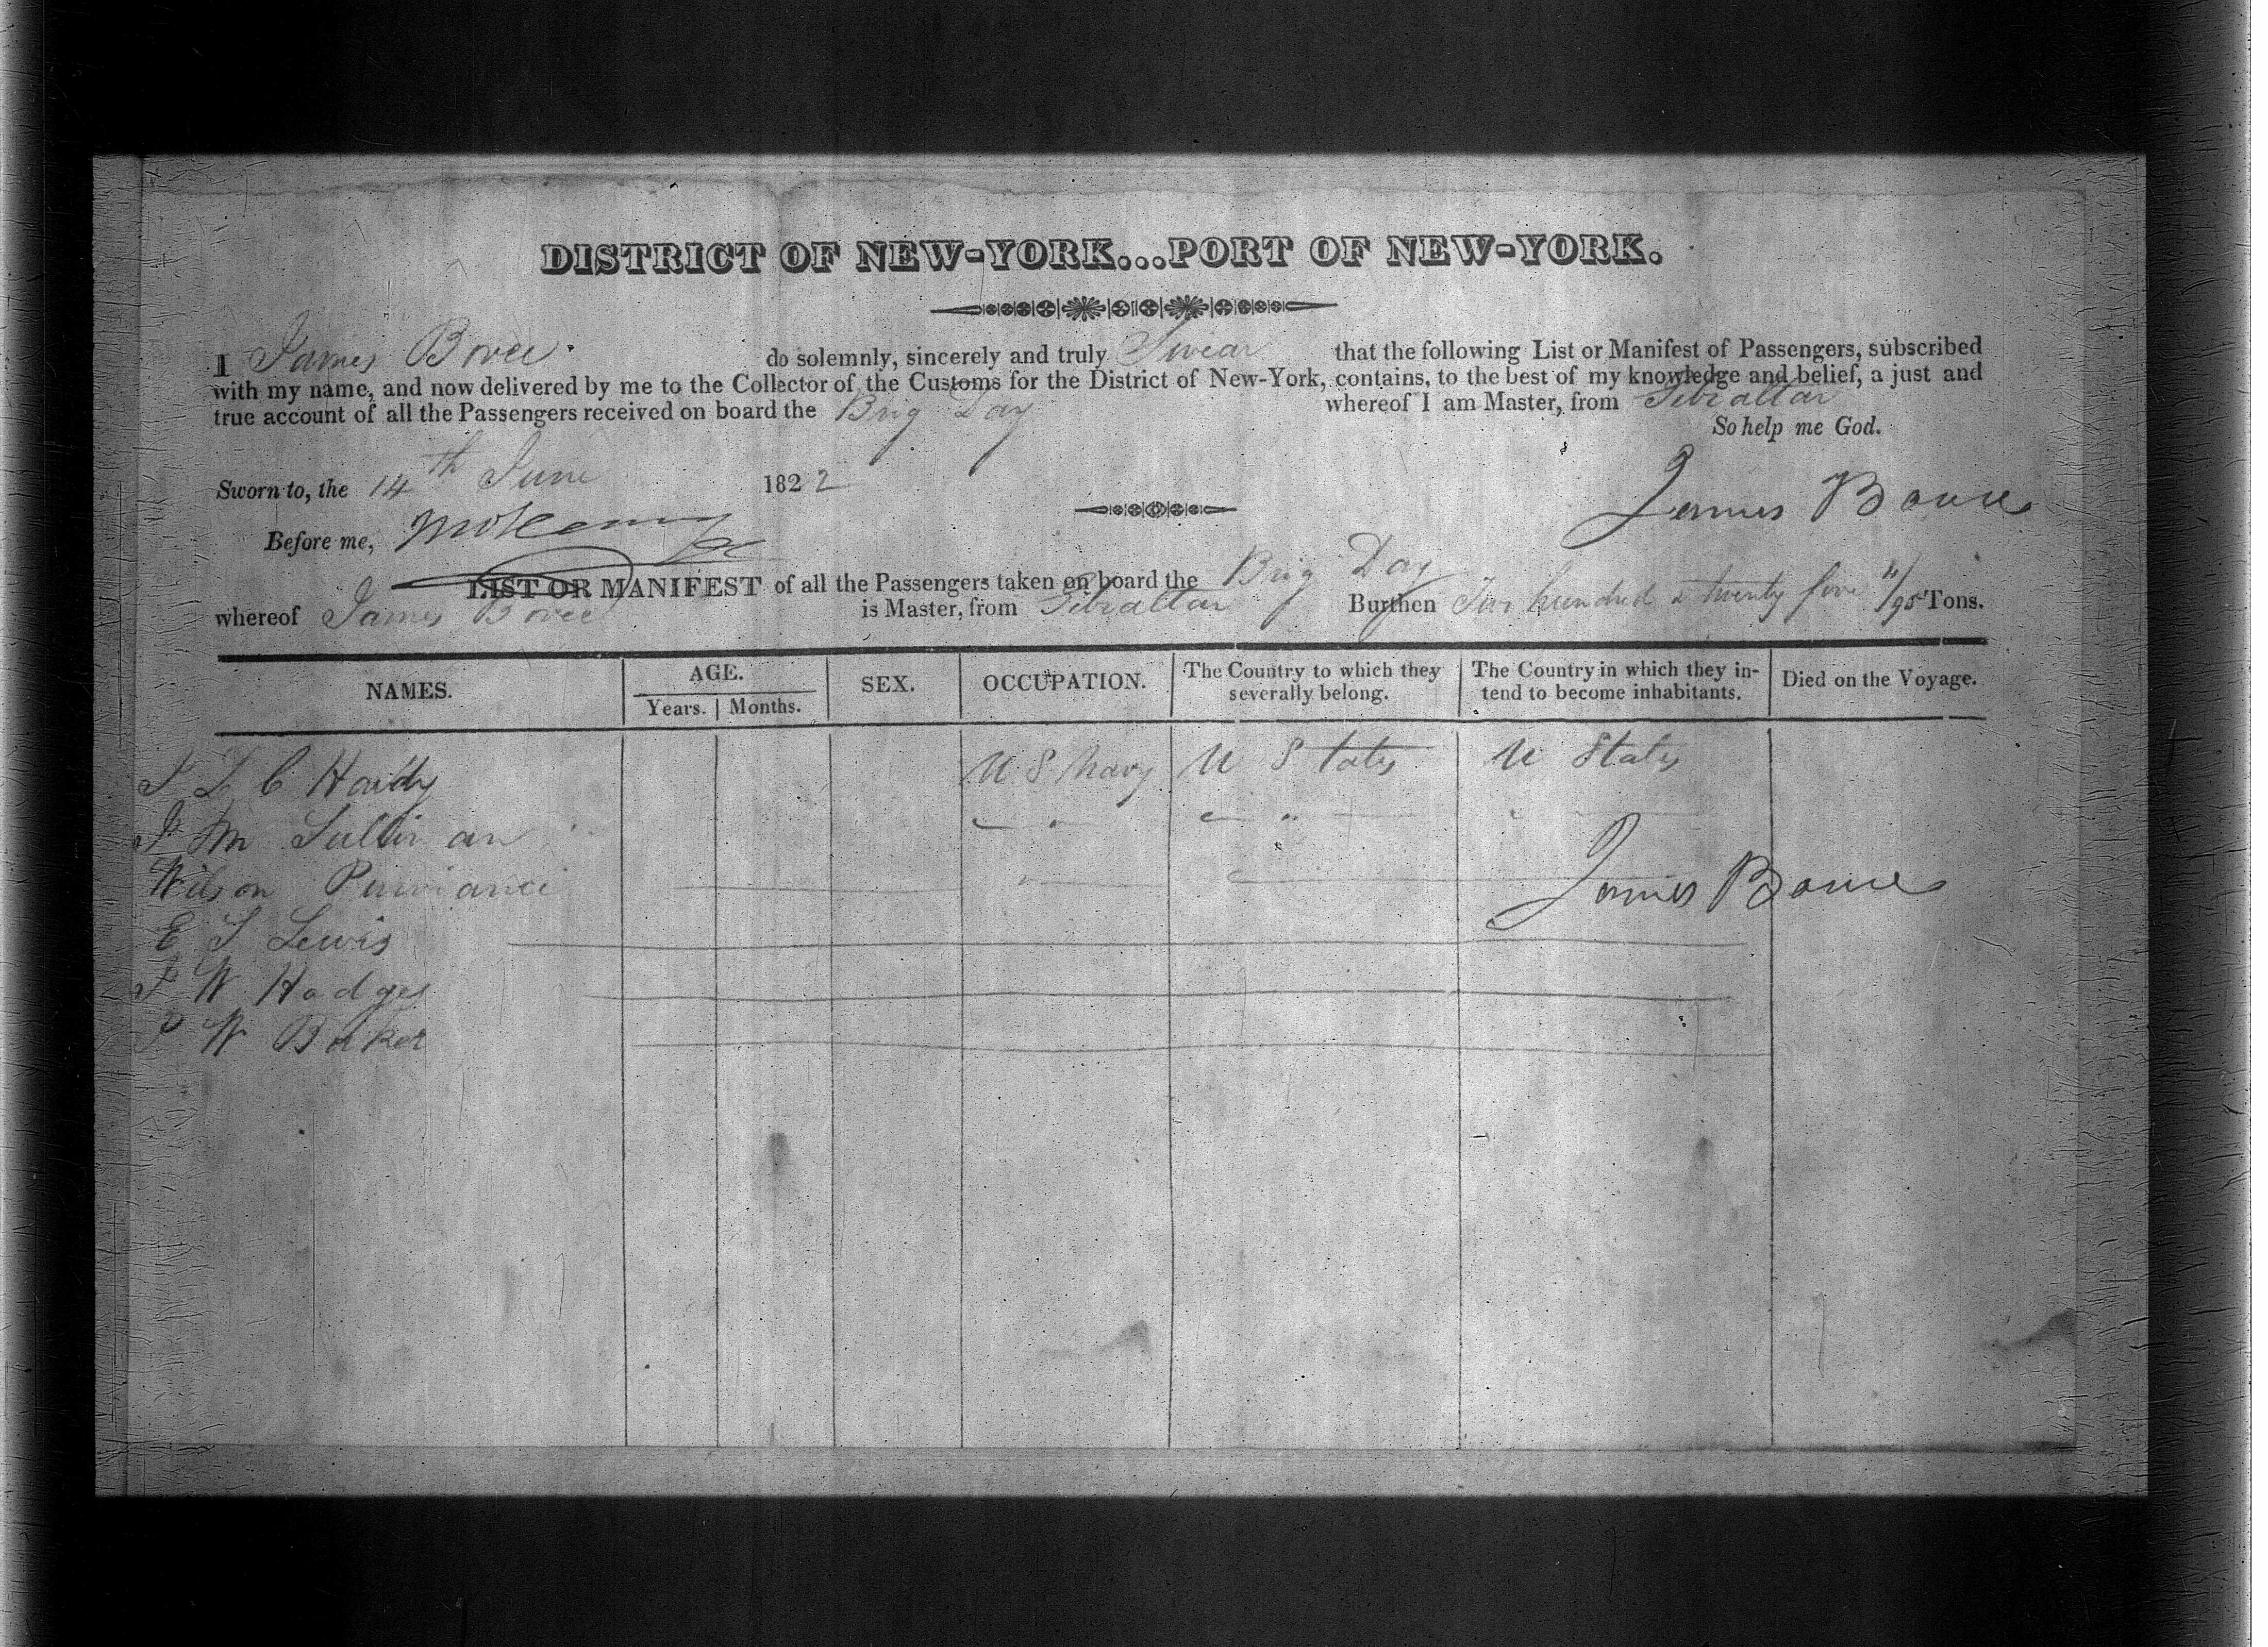 DISTRICT OF NEW-YORK...PORT OF NEW-YORK.
I James Boree do solemnly, sincerely and truly Swear that the following List or Manifest of Passengers, subscribed
with my name, and now delivered by me to the Collector of the Customs for the District of New-York, contains, to the best of my knowledge and belief, a just and
true account of all the Passengers received on board the Brig Day whereof I am Master, from Gibraltar
So help me God.
Sworn to, the 14th June 1822
James
Before me,
LIST OR MANIFEST of all the Passengers taken on board the Brig Day
whereof James Boree is Master, from Gibraltar Burthen Two hundred & twenty five /95 Tons.
NAMES. AGE. SEX. OCCUPATION. The Country to which they severally belong. The Country in which they intend to become inhabitants. Died on the Voyage.
Years. Months.
L C Hardy U S Navy U States U States
M Sullivan
Wilson Purviance
James
E S Lewis
W Hodges
W Baker